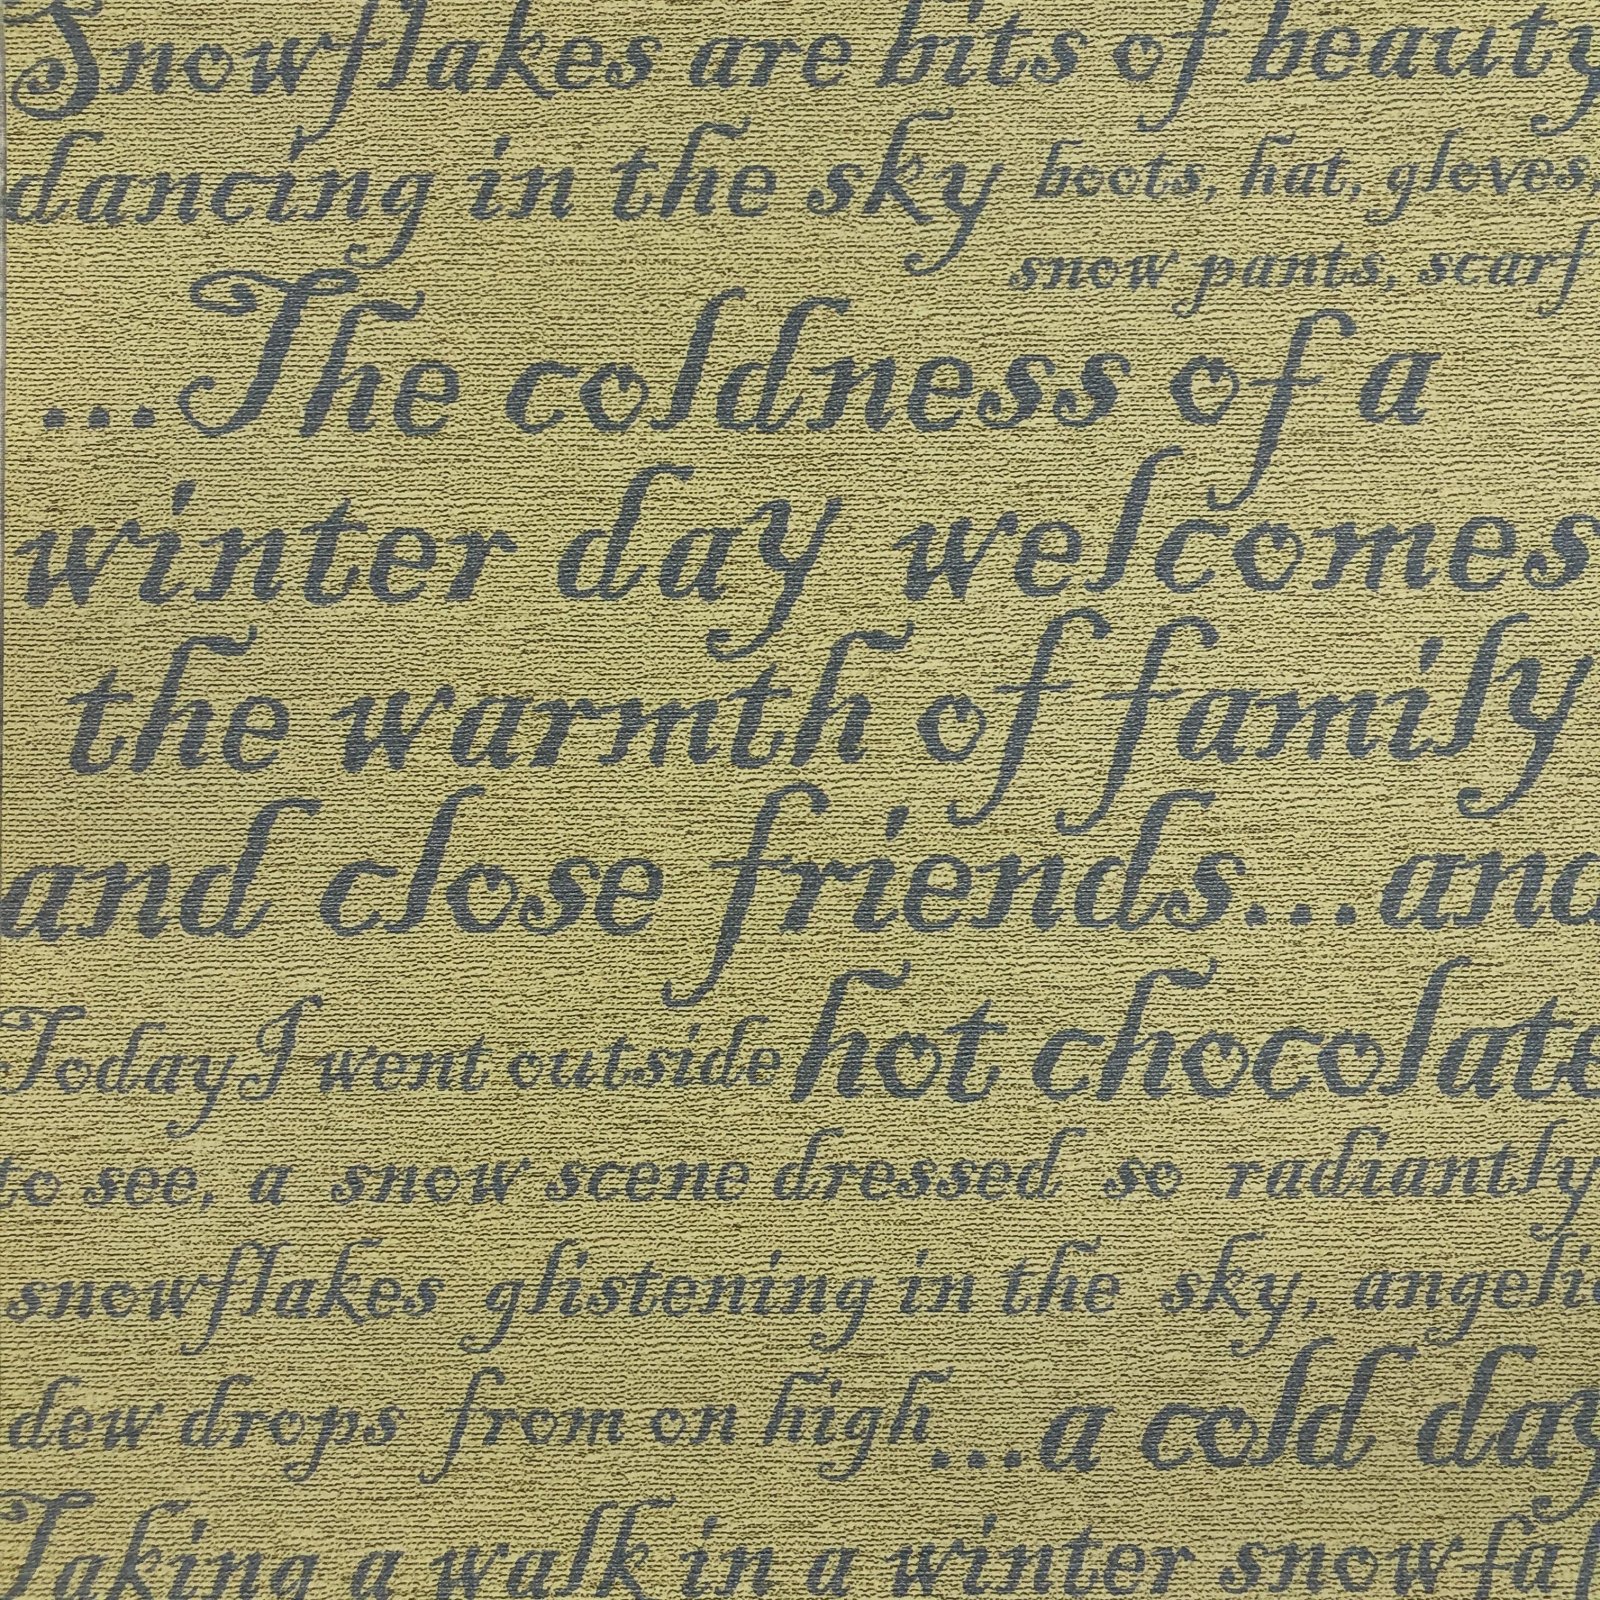 Snowflakes are bits of beauty
dancing in the sky boots, hat, gloves,
snow pants, scarf
...The coldness of a
winter day welcomes
the warmth of family
and close friends...and
Today I went outside hot chocolate
to see, a snow scene dressed so radiantly
snowflakes glistening in the sky, angelic
dew drops from on high...a cold day
Taking a walk in a winter snowfal